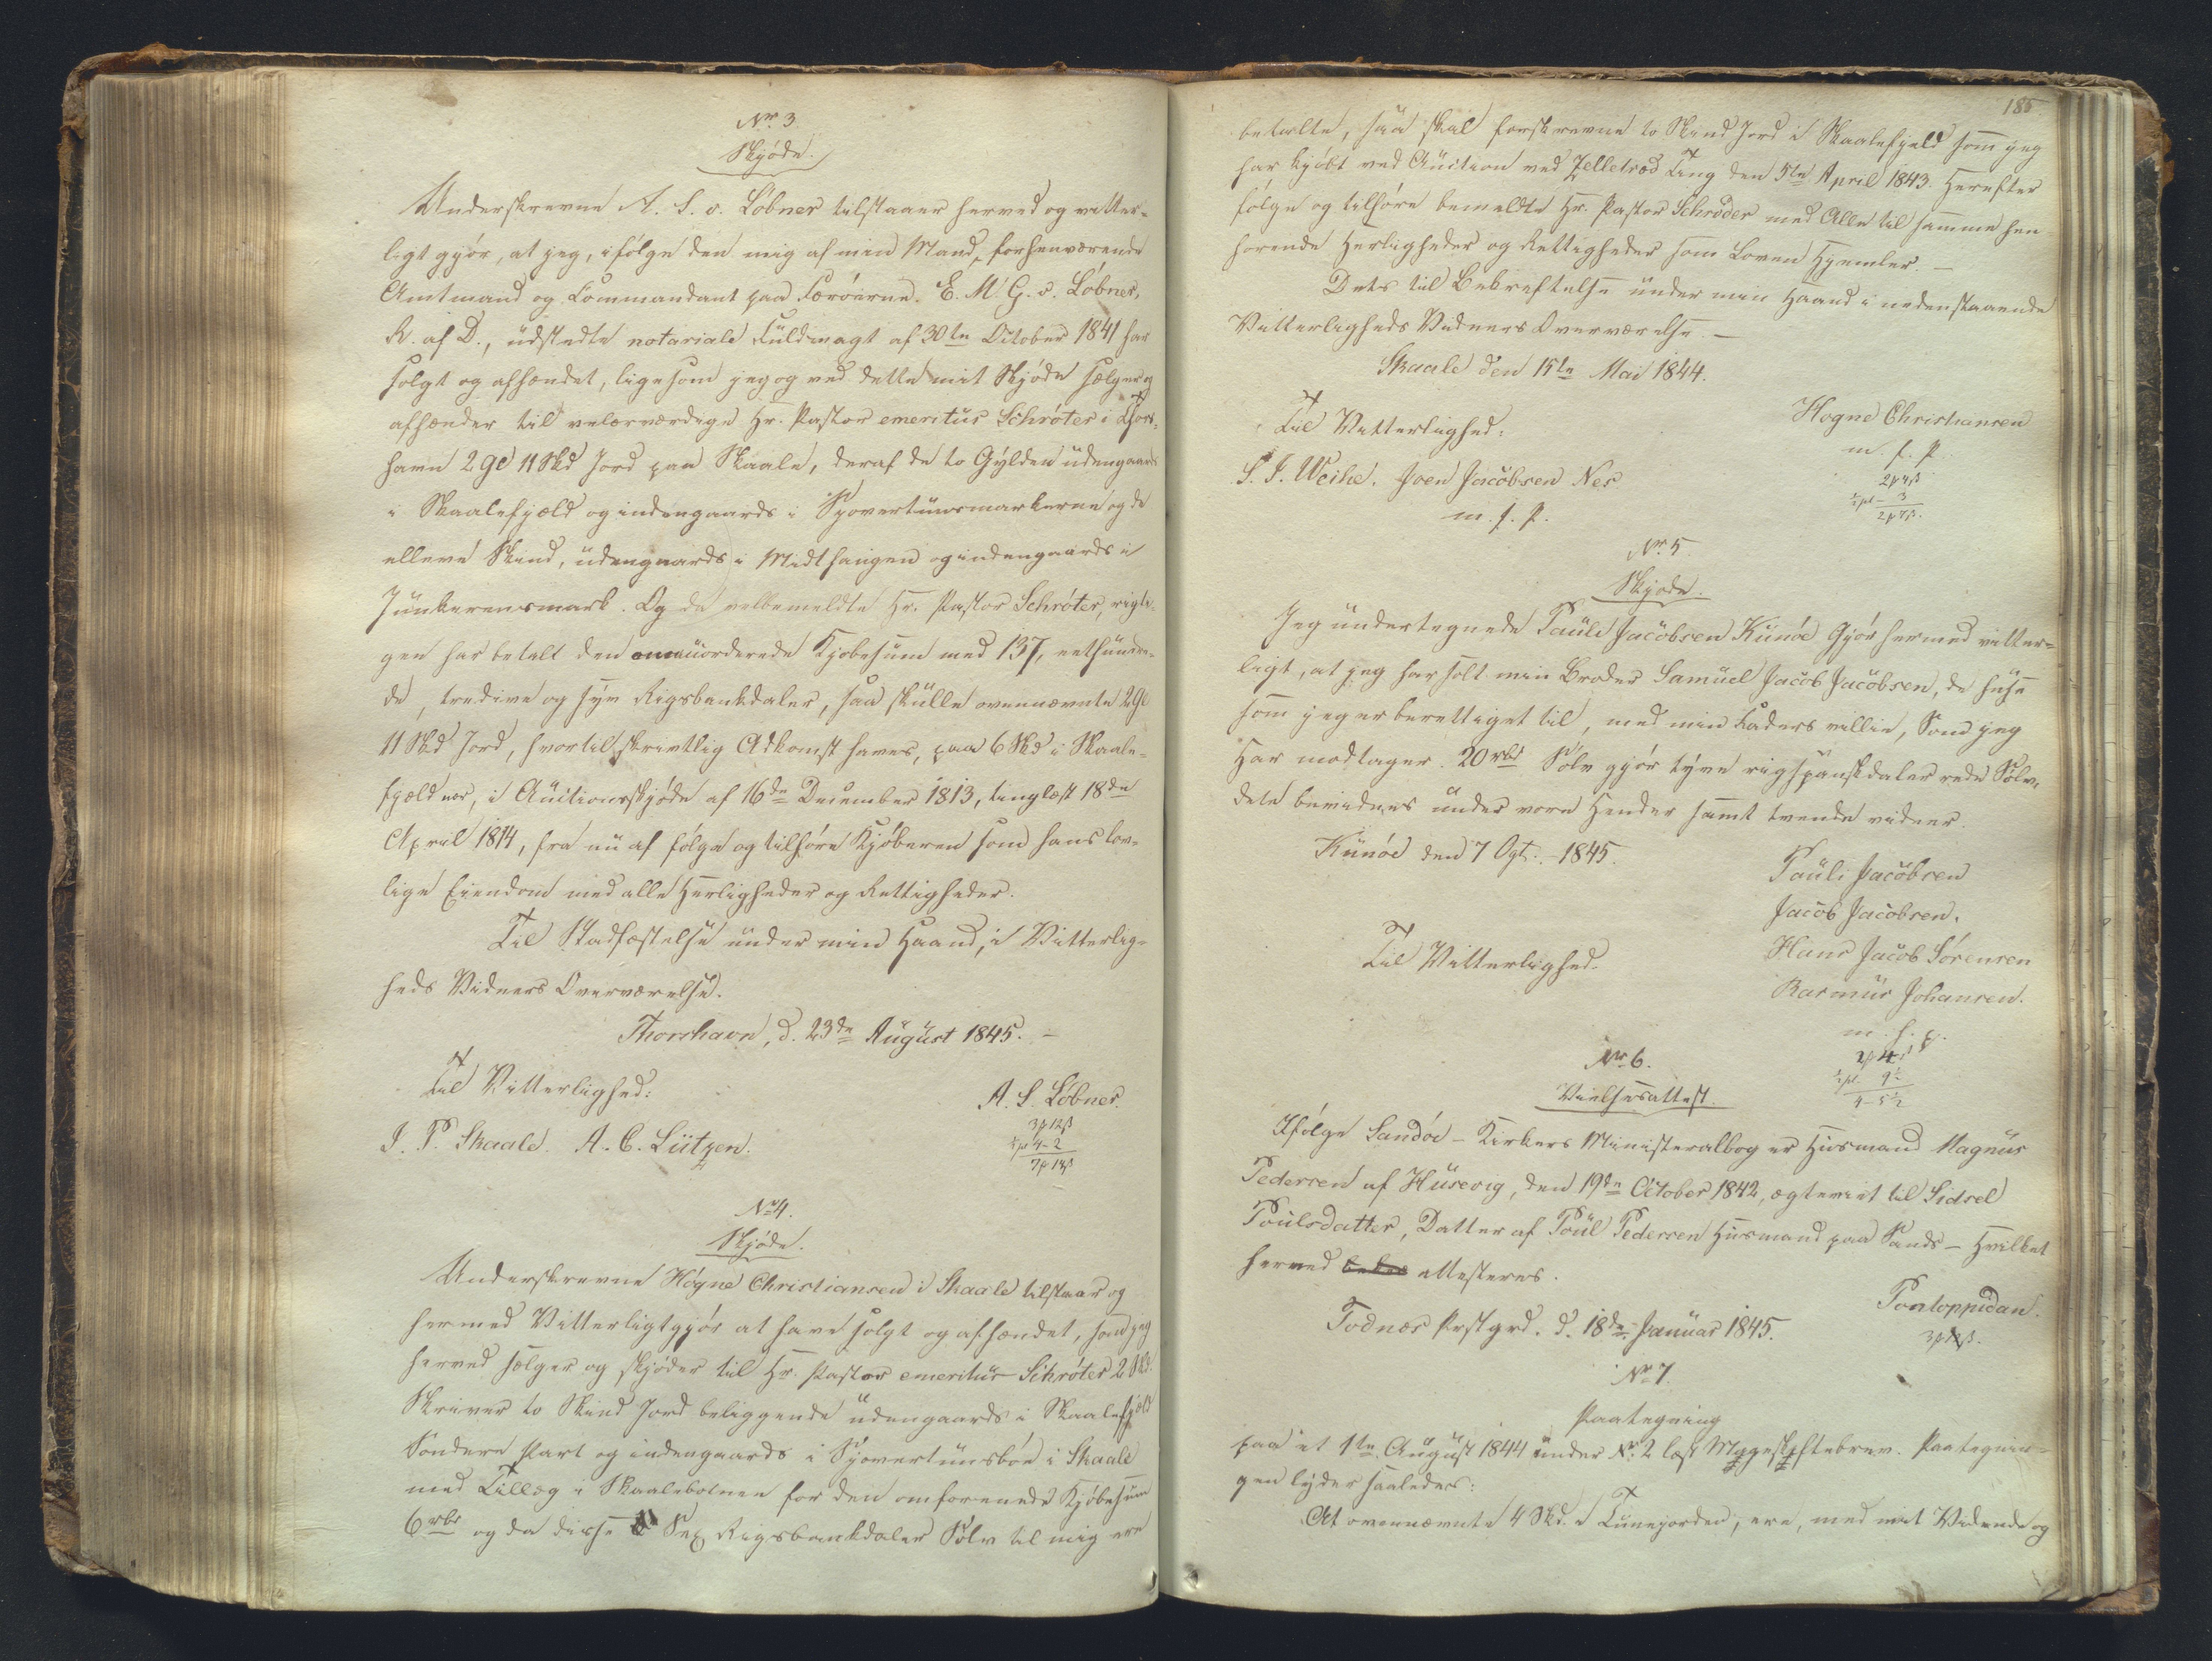 Nr 3.
Skjøde.
Underskrevne A. S. v. Løbner tilstaaer herved og vitter-
ligt gjør, at jeg, ifølge den mig af min Mand, forhenværende
Amtmand og Commandant paa Færøerne. E. M. G. v. Løbner,
R. af D., udstedte notariale Fuldmagt af 30te October 1841 har
solgt og afhændet, ligesom jeg og ved dette mit Skjøde sælger og
afhænder til velærværdige Hr. Pastor emeritus Schrøter i Thors-
havn 2 Gl 11 Skd Jord paa Skaale, deraf de to Gylden udengaards
i Skaalefjeld og indengaards i Sjovertunsmarkerne og de
elleve Skind, udengaards i Midthaugen og indengaards i
Junkerensmark. Og da velbemeldte Hr. Pastor Schrøter, rigti-
gen har betalt den accorderede Kjøbesum med 137, eethundre-
de, tredive og syv Rigsbankdaler, saa skulle ovennævnte 2 Gl
11 Skd Jord, hvortil skrivtlig Adkomst haves, paa 6 Skd i Skaale-
fjeld nor, i Auctionsskjøde af 16de December 1813, tinglæst 18de
April 1814, fra nu af følge og tilhøre Kjøberen som hans lov-
lige Eiendom med alle Herligheder og Rettigheder.
Til Stadfæstelse under min Haand, i Vitterlig-
heds Vidners Overværelse.
Thorshavn, d. 23de August 1845. –
Til Vitterlighed:
A. S. Løbner.
J. P. Skaale. A. C. Lützen.
3 β 12 β
½ pl 4-2
7 β 14 β
Nr 4.
Skjøde.
Underskrevne Høgne Christiansen i Skaale tilstaar og
hermed Vitterligtgjør at have solgt og afhændet, som jeg
herved sælger og skjøder til Hr. Pastor emeritus Schrøter 2 Skd.
Skriver to Skind Jord beliggende udengaards i Skaalefjeld
Søndere Part og indengaards i Syovertunsbøe i Skaale
med Tillæg i Skaalebotnen for den omforenede Kjøbesum
6 rbd og da disse Sex Rigsbankdaler Sølv til mig ere
185
betalte, saa skal forskrevne to Skind Jord i Skaalefjeld som jeg
har kjøbt ved Auction ved Zelletræd Ting den 5te April 1843. Herefter
følge og tilhøre bemeldte Hr. Pastor Schrøder med Alle til samme hen-
hørende Herligheder og Rettigheder som Loven Hjemler. –
Dets til Bekreftelse under min Haand i nedenstaaende
Vitterligheds Vidners Overværelse. –
Skaale den 15te Mai 1844.
Til Vitterlighed:
Hogne Christiansen
m. f. P.
S. J. Weihe. Joen Jacobsen Nes
m. f. P.
2 β 4 β
½ pl – 3
2 β 7 β.
Nr 5.
Skjøde.
Jeg undertegnede Pauli Jacobsen Kunøe Gjør hermed vitter-
ligt, at jeg har solt min Broder Samuel Jacob Jacobsen, de huse
som jeg er berettiget til, med min Faders villie, Som jeg
Har modtager. 20 rbd Sølv gjør tyve rigspanskdaler rede Sølv,
dete bevidnes under vore Hender samt tvende vidner.
Kunøe den 7 Ogt. – 1845.
Pauli Jacobsen
Jacob Jacobsen.
Til Vitterlighed.
Hans Jacob Sørensen
Rasmus Johansen.
m. f. P.
½ pl 9½
4-5½
Nr 6.
Vielsesattest.
Ifølge Sandøe-Kirkers Ministeralbog er Husmand Magnus
Pedersen af Husevig, den 19de October 1842, ægteviet til Sidsel
Poulsdatter, Datter af Poul Pedersen Husmand paa Sands – Hvilket
herved attesteres.
Todnæs Prstgrd. d. 18de Januar 1845.
Pontoppidan.
Nr 7.
Paategning
paa et 1te August 1844 under Nr. 2 læst Mageskiftebrev. Paategnin-
gen lyder saaledes:
At ovennævnte 4 Skd. i Tunejorden, ere, med mit Vidende og